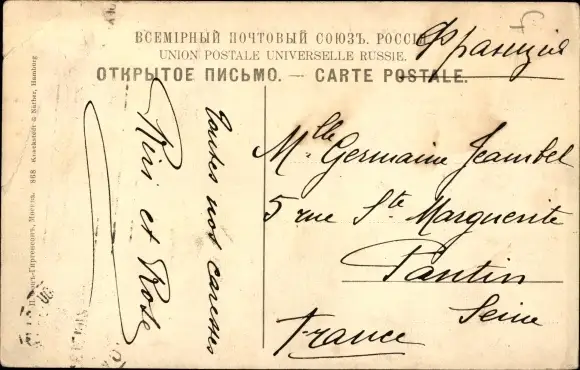 ВСЕМІРНЫЙ ПОЧТОВЫЙ СОЮЗЪ. РОССІЯ
UNION POSTALE UNIVERSELLE RUSSIE.
ОТКРЫТОЕ ПИСЬМО. — CARTE POSTALE.
Франція
Mlle Germaine Jeambel
5 rue Ste Marguerite
Pantin
Seine
France
Toutes nos caresses
Riri et Rose
868 Knackstedt & Näther, Hamburg
Москва.